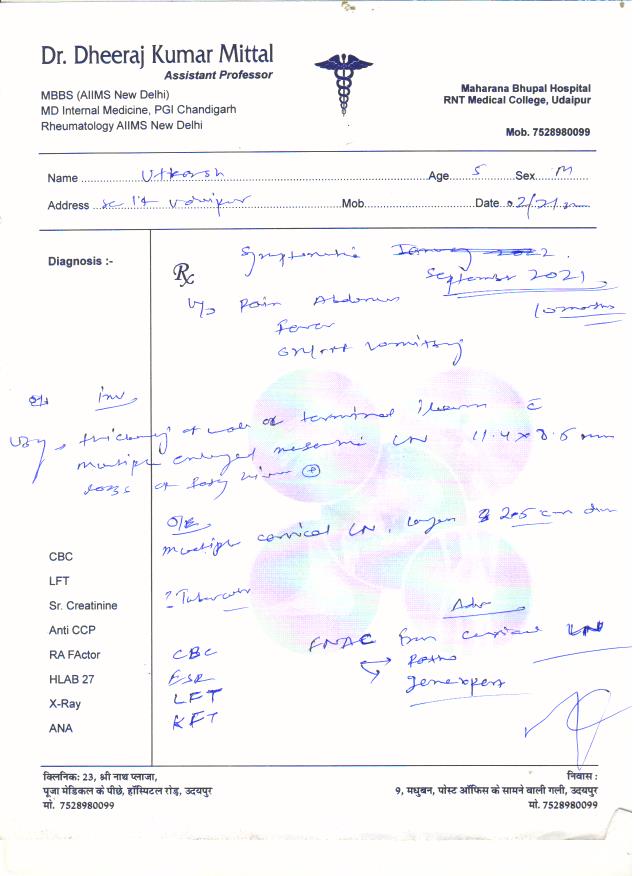 Dr. Dheeraj Kumar Mittal
Assistant Professor
MBBS (AIIMS New Delhi)
MD Internal Medicine, PGI Chandigarh
Rheumatology AIIMS New Delhi
Maharana Bhupal Hospital
RNT Medical College, Udaipur
Mob. 7528980099
Name Utkarsh Age 5 Sex M
Address Udaipur Mob. Date
Diagnosis :-
Rx Symptomatic
September 2021
Pain Abdomen 10 months
Fever
vomitting
inv
thickening of wall of terminal ileum c
multiple enlarged mesenteric LN 11.4 x 8.6 mm
⊕
O/E
multiple cervical LN, 2.5 cm
CBC
LFT
Sr. Creatinine
Anti CCP
RA FActor
HLAB 27
X-Ray
ANA
? Tubercular
CBC
ESR
LFT
KFT
Adv
FNAC from cervical LN
genexpert
क्लिनिक: 23, श्री नाथ प्लाजा,
पूजा मेडिकल के पीछे, हॉस्पिटल रोड़, उदयपुर
मो. 7528980099
निवास :
9, मधुबन, पोस्ट ऑफिस के सामने वाली गली, उदयपुर
मो. 7528980099